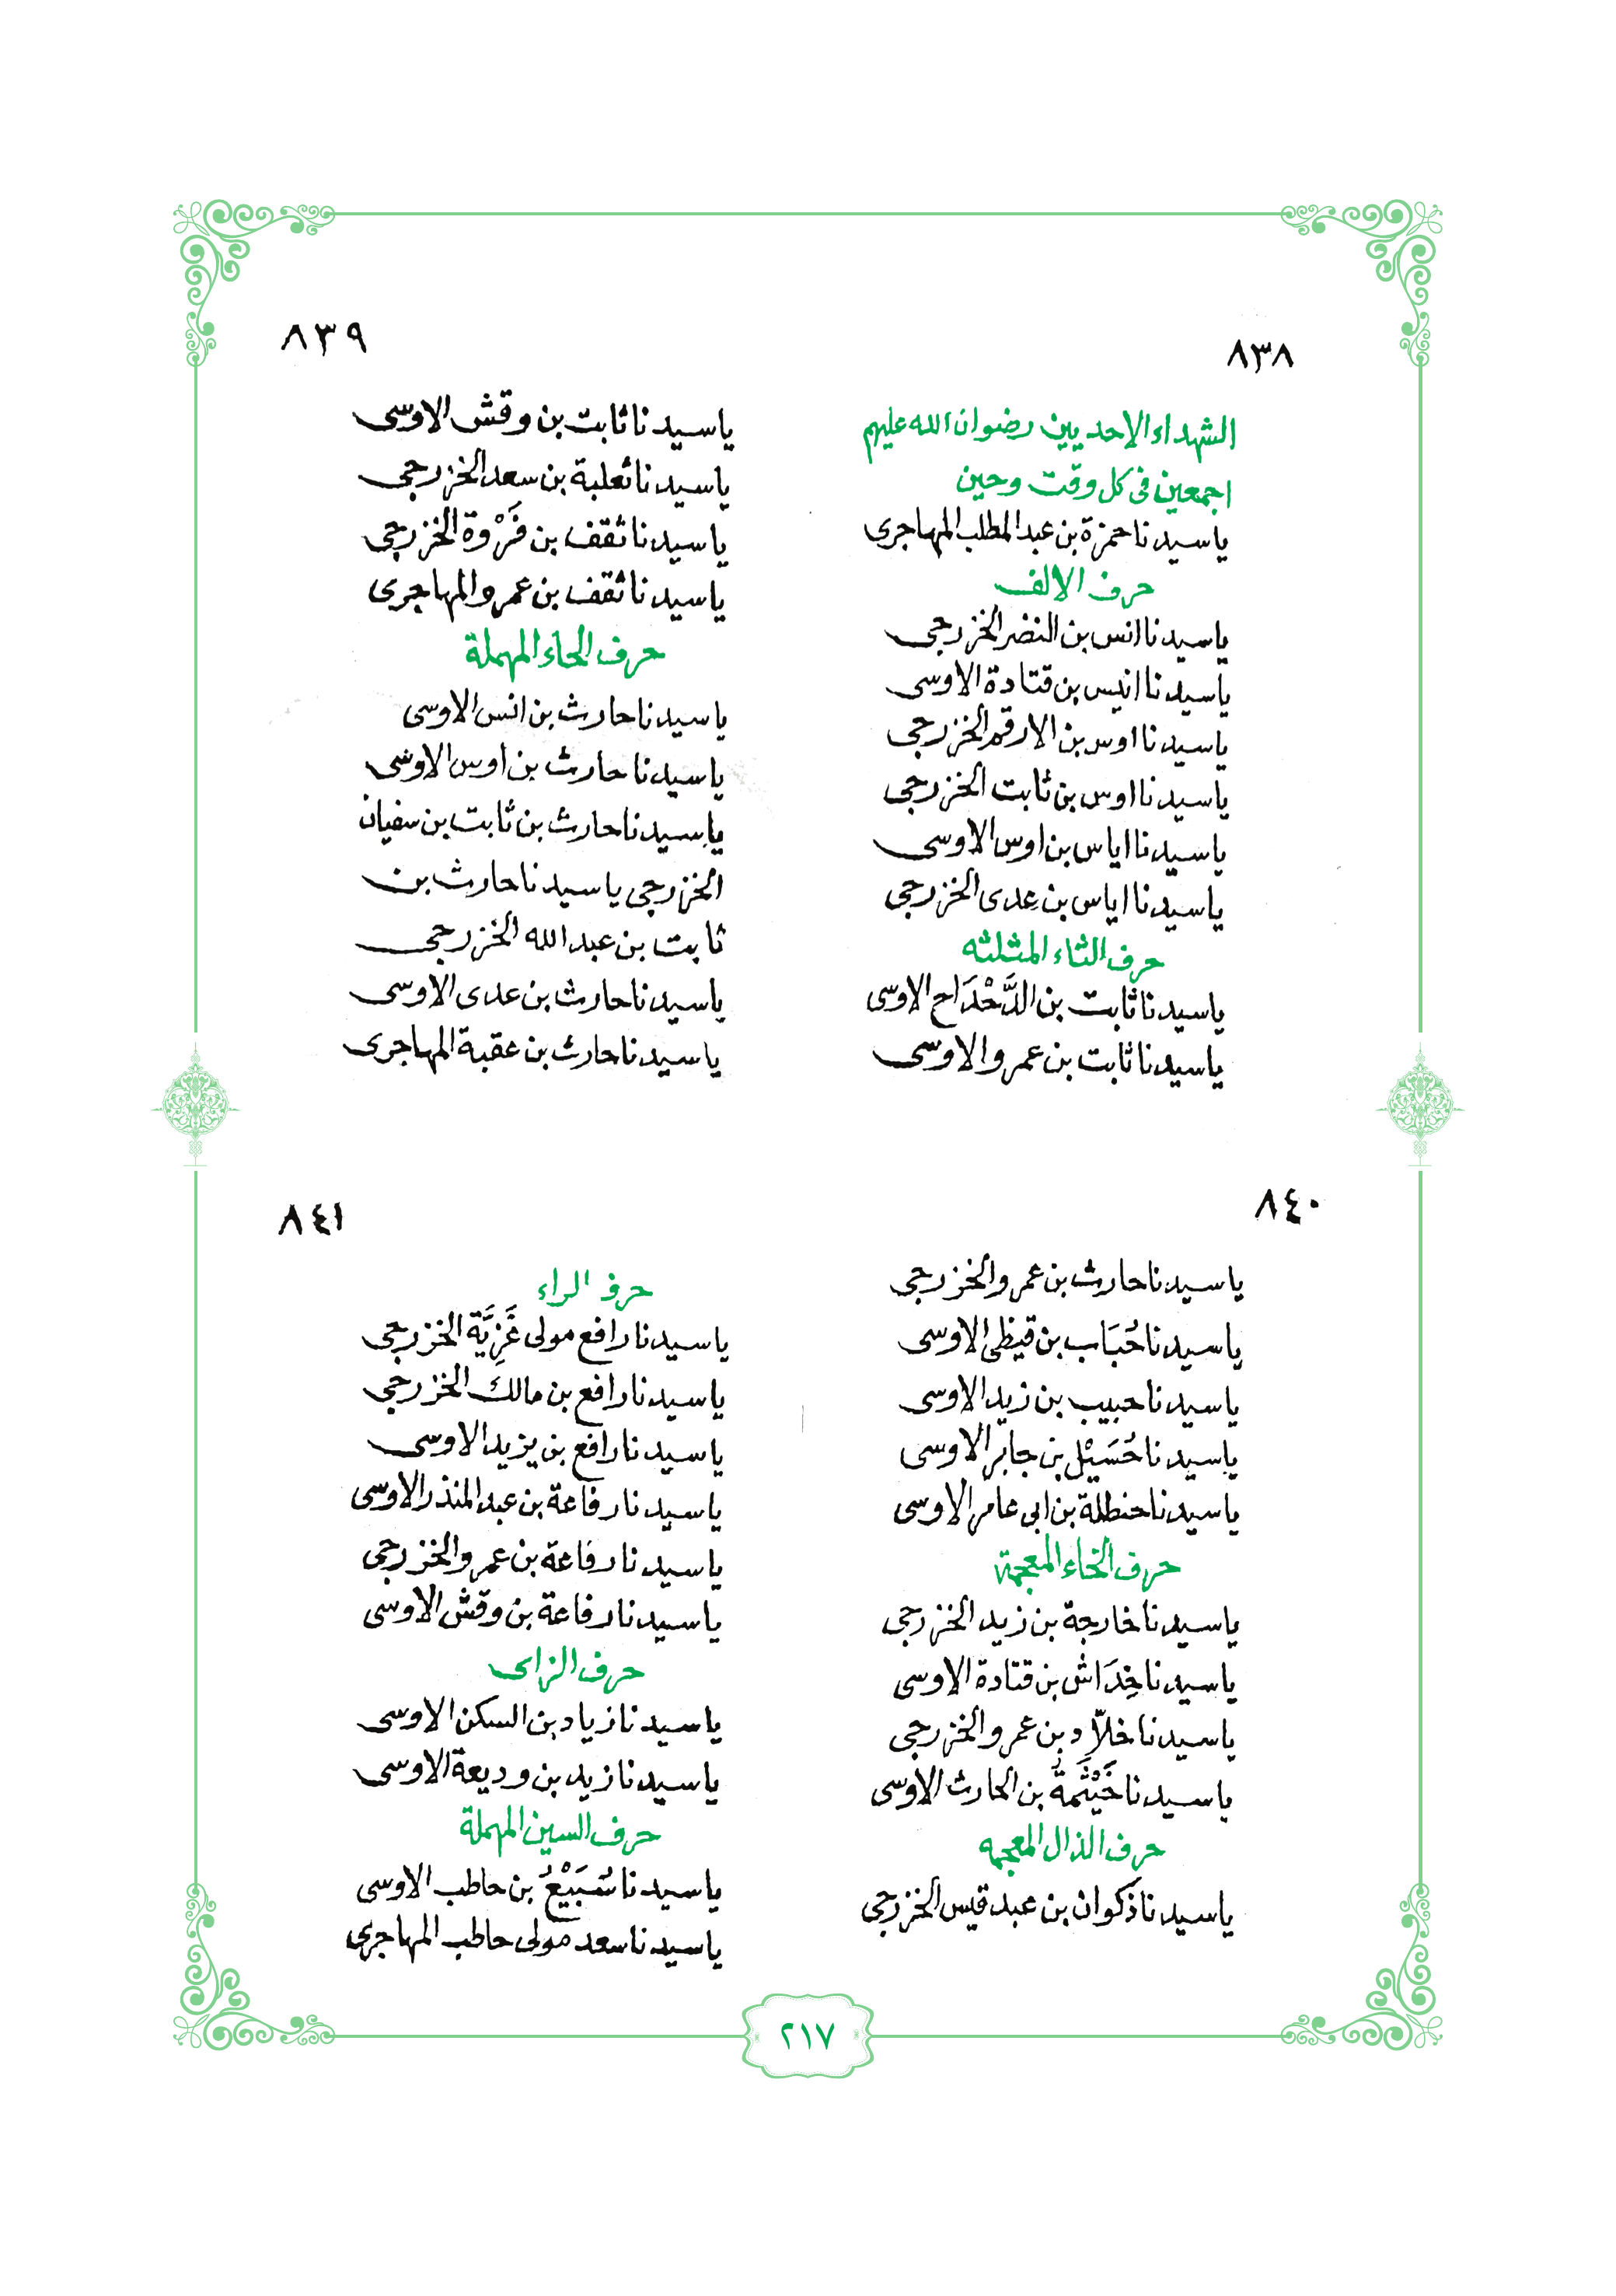 ٨٣٨
الشهداء الاحديين رضوان الله عليهم
اجمعين فى كل وقت وحين
ياسيدنا حمزة بن عبد المطلب المهاجرى
حرف الالف
ياسيدنا انس بن النضر الخزرجى
ياسيدنا انيس بن قتادة الاوسى
ياسيدنا اوس بن الارقم الخزرجى
ياسيدنا اوس بن ثابت الخزرجى
ياسيدنا اياس بن اوس الاوسى
ياسيدنا اياس بن عدى الخزرجى
حرف الثاء المثلثه
ياسيدنا ثابت بن الدَّحْدَاح الاوسى
ياسيدنا ثابت بن عمرو الاوسى
٨٣٩
ياسيدنا ثابت بن وقش الاوسى
ياسيدنا ثعلبة بن سعد الخزرجى
ياسيدنا ثقف بن فَرْوة الخزرجى
ياسيدنا ثقف بن عمرو المهاجرى
حرف الحاء المهملة
ياسيدنا حارث بن انس الاوسى
ياسيدنا حارث بن اوس الاوسى
ياسيدنا حارث بن ثابت بن سفيان
الخزرجى ياسيدنا حارث بن
ثابت بن عبد الله الخزرجى
ياسيدنا حارث بن عدى الاوسى
ياسيدنا حارث بن عقبة المهاجرى
٨٤٠
ياسيدنا حارث بن عمرو الخزرجى
ياسيدنا حُبَاب بن قيظى الاوسى
ياسيدنا حبيب بن زيد الاوسى
ياسيدنا حُسَيْل بن جابر الاوسى
ياسيدنا حنظلة بن ابى عامر الاوسى
حرف الخاء المعجمة
ياسيدنا خارجة بن زيد الخزرجى
ياسيدنا خِدَاش بن قتادة الاوسى
ياسيدنا خلاّد بن عمرو الخزرجى
ياسيدنا خَيْثَمَةُ بن الحارث الاوسى
حرف الذال المعجمه
ياسيدنا ذَكوان بن عبد قيس الخزرجى
٨٤١
حرف الراء
ياسيدنا رافع مولى غَزِيَّة الخزرجى
ياسيدنا رافع بن مالك الخزرجى
ياسيدنا رافع بن يزيد الاوسى
ياسيدنا رفاعة بن عبد المنذر الاوسى
ياسيدنا رفاعة بن عمرو الخزرجى
ياسيدنا رفاعة بن وقش الاوسى
حرف الزاى
ياسيدنا زياد بن السكن الاوسى
ياسيدنا زيد بن وديعة الاوسى
حرف السين المهملة
ياسيدنا سُبَيْعُ بن حاطب الاوسى
ياسيدنا سعد مولى حاطب المهاجرى
٢١٧